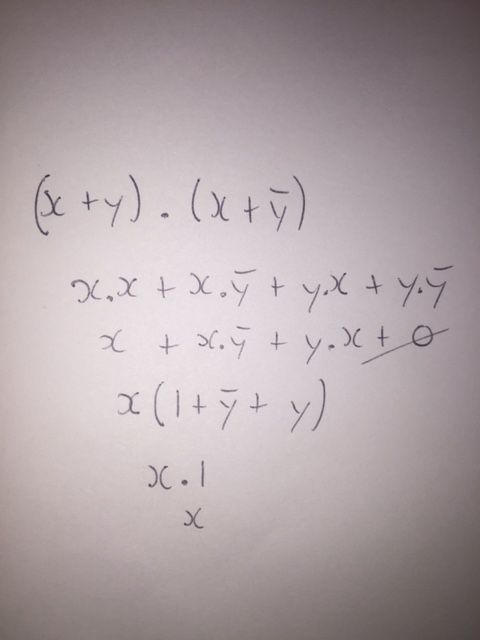 (x + y) . (x + ȳ)
x.x + x.ȳ + y.x + y.ȳ
x + x.ȳ + y.x + 0
x(1 + ȳ + y)
x.1
x